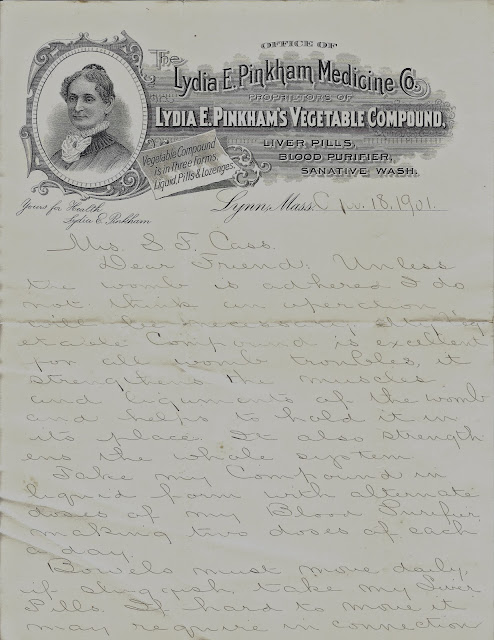 OFFICE OF
The
Lydia E. Pinkham Medicine Co.
PROPRIETORS OF
LYDIA E. PINKHAM'S VEGETABLE COMPOUND,
LIVER PILLS,
BLOOD PURIFIER,
SANATIVE WASH.
Vegetable Compound
is in Three Forms,
Liquid, Pills & Lozenges.
Yours for Health
Lydia E. Pinkham
Lynn, Mass. 18, 1901.
Mrs. S. F. Cass.
Dear Friend: Unless
the womb is adhered I do
not think an operation
will be necessary. My Veg
etable Compound is excellent
for all womb troubles, it
strengthens the muscles
and ligaments of the womb
and helps to hold it in
its place. It also strength
ens the whole system.
Take my Compound in
liquid form with alternate
doses of my Blood Purifier,
making two doses of each
a day.
Bowels must move daily,
if sluggish, take my Liver
Pills. If hard to move it
may require in connection